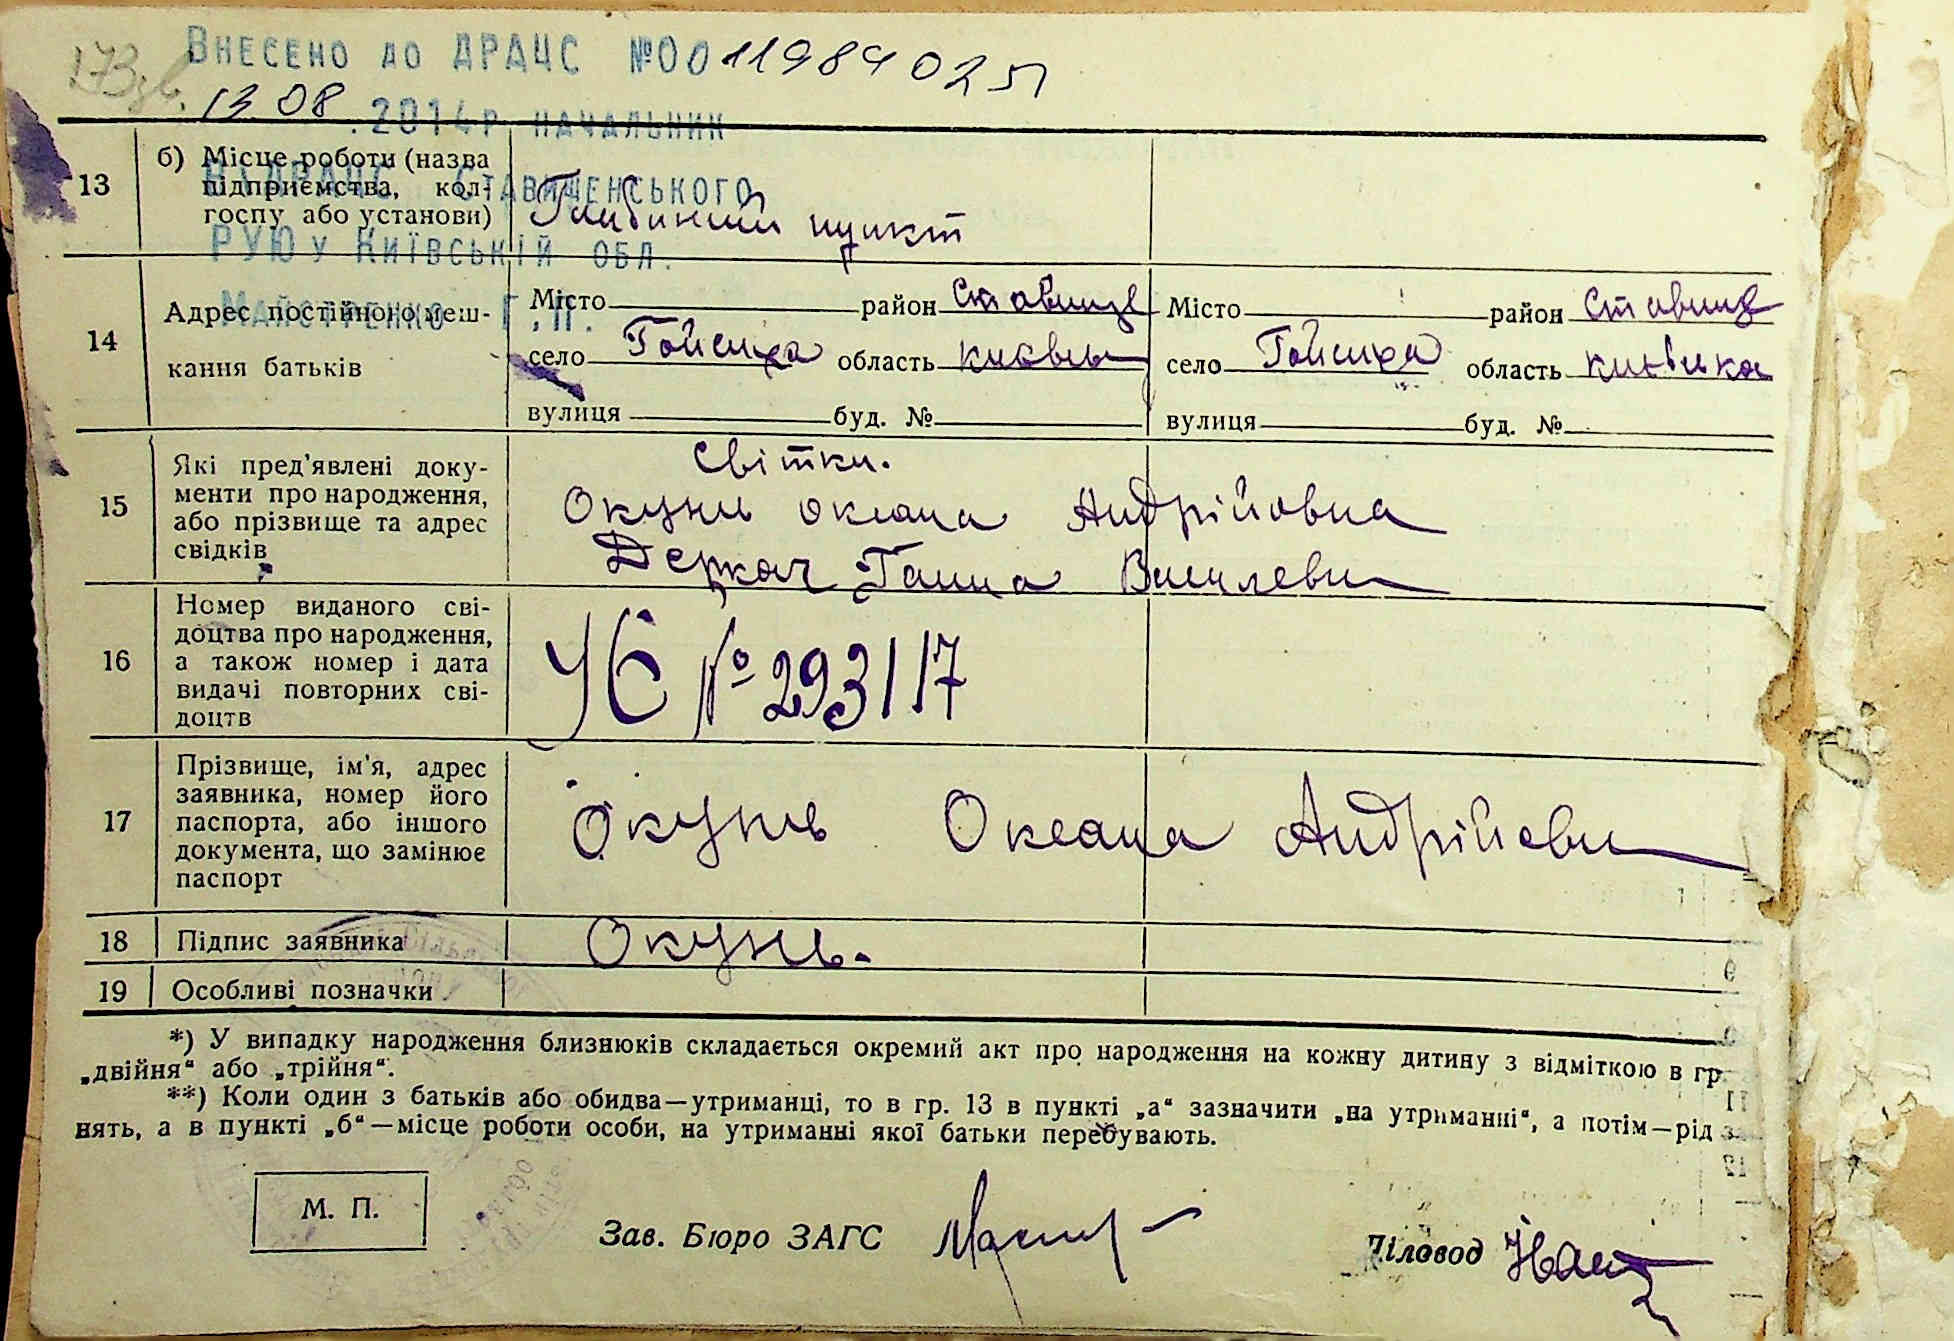 173 зв.
ВНЕСЕНО ДО ДРАЦС №00119840251
13.08.2014р НАЧАЛЬНИК
ВДРАЦС СТАВИЩЕНСЬКОГО
РУЮ У КИЇВСЬКІЙ ОБЛ.
МАЙСТРЕНКО Г.П.
13
б) Місце роботи (назва
підприємства, кол-
госпу або установи)
Глибинний пункт
14
Адрес постійного меш-
кання батьків
Місто район Ставище
село Гойсиха область києвськ
вулиця буд. №
Місто район Ставище
село Гойсиха область києвська
вулиця буд. №
15
Які пред'явлені доку-
менти про народження,
або прізвище та адрес
свідків
Світки.
Окунь Оксана Андрійовна
Деркач Ганна Василевн
16
Номер виданого сві-
доцтва про народження,
а також номер і дата
видачі повторних сві-
доцтв
УБ №293117
17
Прізвище, ім'я, адрес
заявника, номер його
паспорта, або іншого
документа, що замінює
паспорт
Окунь Оксана Андрійовн
18 Підпис заявника
Окунь.
19 Особливі позначки
*) У випадку народження близнюків складається окремий акт про народження на кожну дитину з відміткою в гр.
„двійня“ або „трійня“.
**) Коли один з батьків або обидва—утриманці, то в гр. 13 в пункті „а“ зазначити „на утриманні“, а потім—рід з
нять, а в пункті „б“—місце роботи особи, на утриманні якої батьки перебувають.
М. П.
Зав. Бюро ЗАГС
Діловод